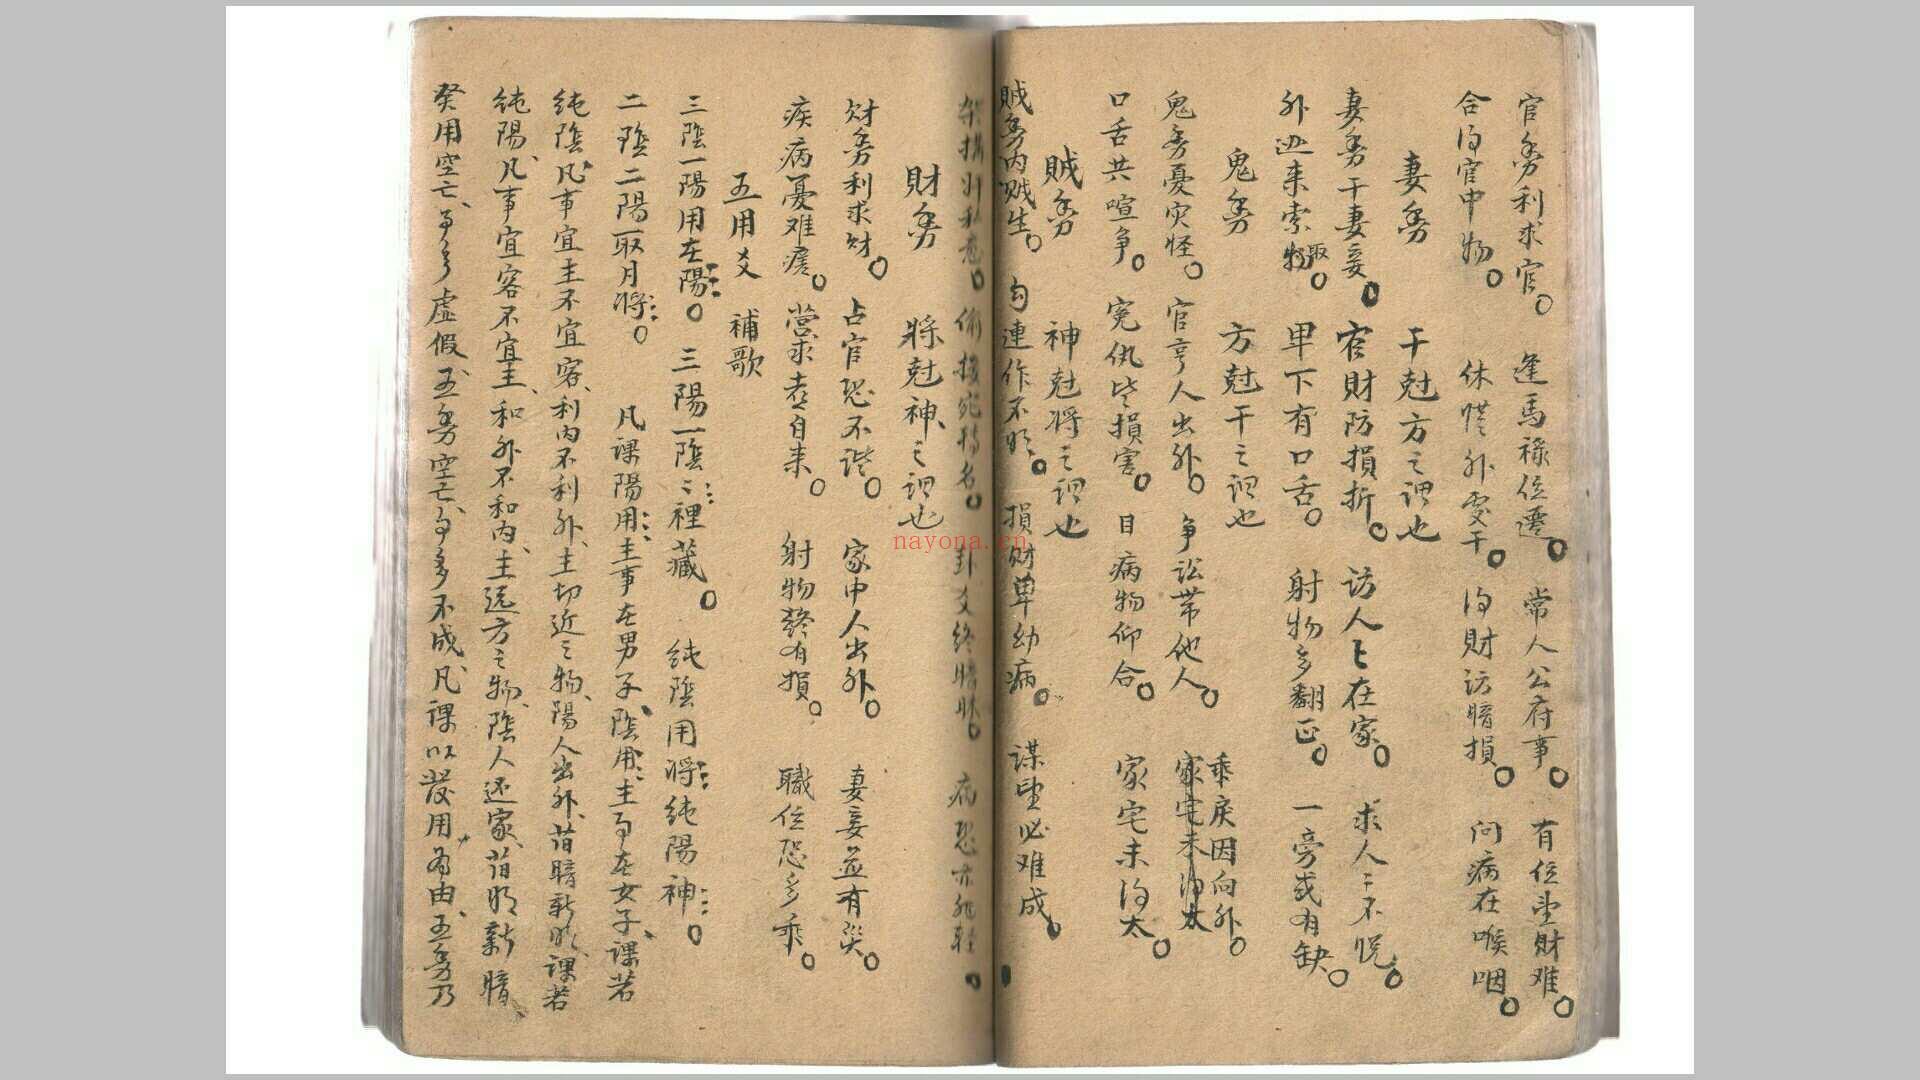 官動利求官 逢馬祿位遷 常人公府事 有位望財難
合得官中物 休慌外受干 得財訪暗損 問病在喉咽
妻動 干尅方之謂也
妻動干妻妾 官財防損折 訪人人在家 求人人不悅
外迯来索物取 卑下有口舌 射物多翻正 一旁或有缺
鬼動 方尅干之謂也
鬼動憂灾怪 官亨人出外 争訟帶他人 乖戾因向外
口舌共喧争 冤仇皆損害 目病物仰合 家宅未得太
賊動 神尅將之謂也
賊動内賊生 勾連作不明 損財卑幼病 謀望必难成
財動 將尅神之謂也
財動利求財 占官恐不諧 家中人出外 妻妾並有災
疾病憂难瘥 營求喜自来 射物終有損 職位恐多乖
五用爻 補歌
三陰一陽用在陽 三陽一陰陰裡藏 純陰用將純陽神
二陰二陽取月將 凡課陽用主事在男子陰用主事在女子課若
純陰凡事宜主不宜客利内不利外主切近之物陽人出外昔暗新明課若
純陽凡事宜客不宜主和外不和内主远方之物陰人还家昔明新暗
癸用空亡事多虚假五動空亡事多不成凡課以發用為由五動乃
nayona.cn